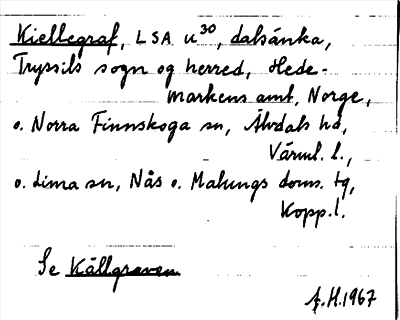 Kiellegraf, LSA u30, dalsänka,
Tryssils sogn og herred, Hede-
markens amt, Norge,
o. Norra Finnskoga sn, Älvdals hd,
Värml. l.,
o. Lima sn, Nås o. Malungs doms. tg,
Kopp. l.
Se Källgraven
A.H.1967